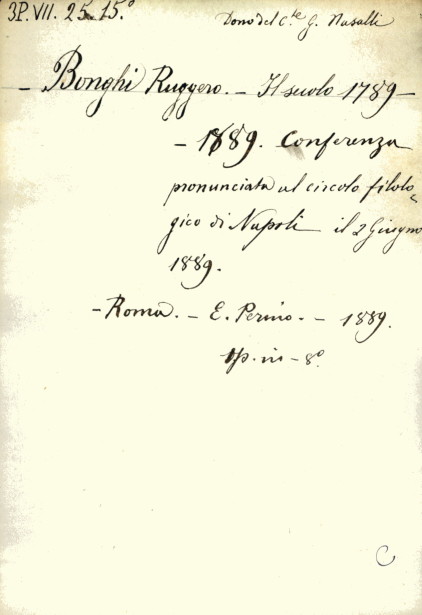 3P. VII. 25. 15.° Dono del C.te G. Nasalli
- Bonghi Ruggero. - Il secolo 1789 -
- 1889. Conferenza
pronunciata al circolo filolo-
gico di Napoli il 2 Giugno
1889.
- Roma. - E. Perino. - 1889.
op. in - 8.°
C